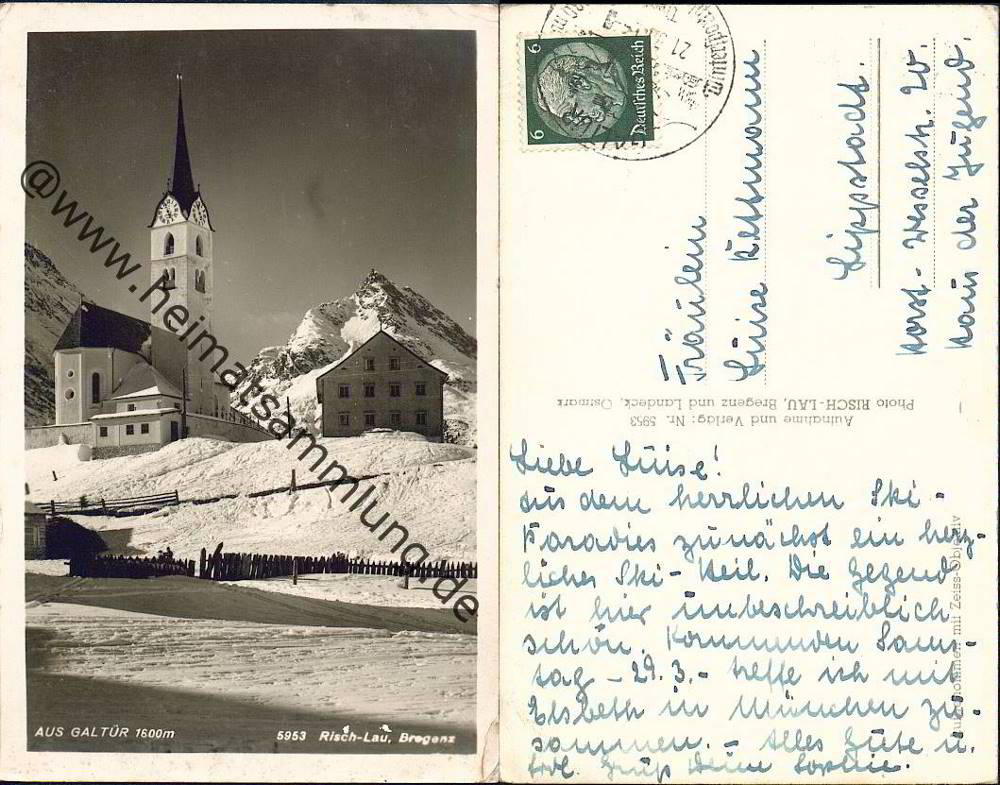 @www.heimatsammlung.de
AUS GALTÜR 1600m
5953 Risch-Lau, Bregenz
6 6
Deutsches Reich
Winterparadies
21
Fräulein
Luise
Lippstadt.
Horst-Wesselstr. 20.
Haus der Jugend.
Aufnahme und Verlag: Nr. 5953
Photo RISCH-LAU, Bregenz und Landeck, Ostmark
Aufgenommen mit Zeiss-Objektiv
Liebe Luise!
Aus dem herrlichen Ski-
Paradies zunächst ein herz-
liches Ski-Heil. Die Gegend
ist hier unbeschreiblich
schön. Kommenden Sams-
tag - 29.3. - treffe ich mit
Elsbeth in München zu-
sammen. - Alles Gute u.
frdl. Gruß Deine Sophie.